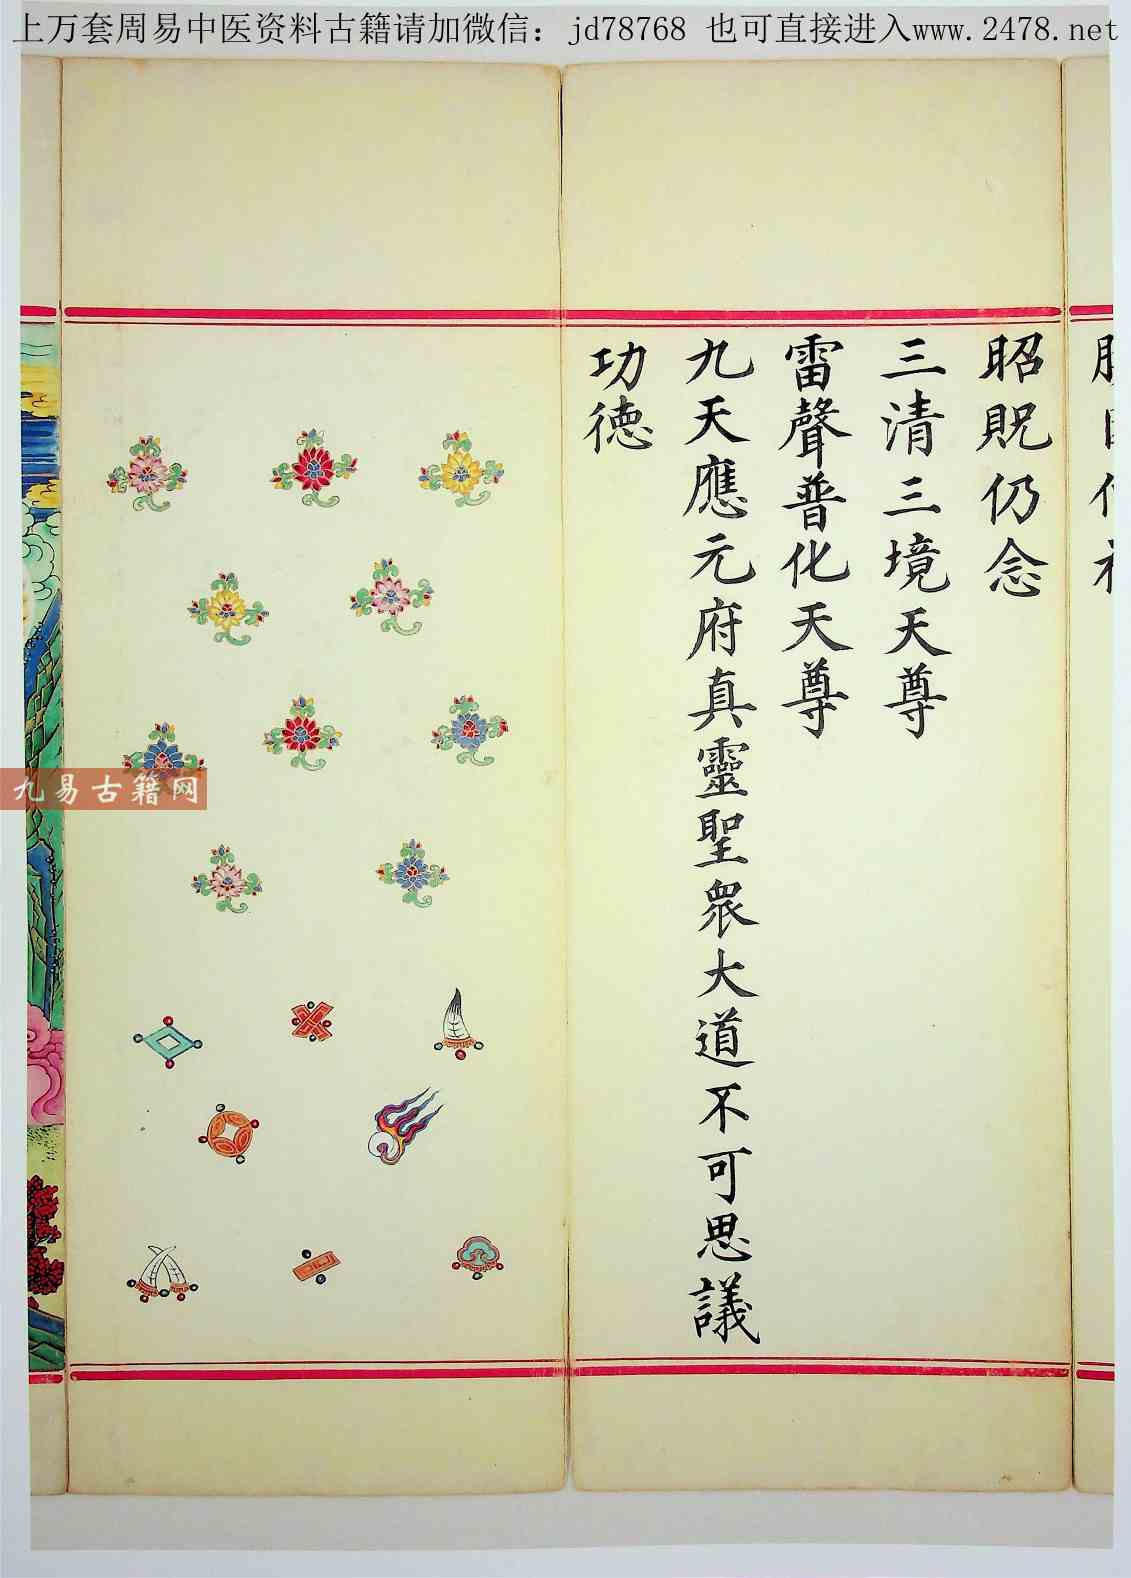 上万套周易中医资料古籍请加微信：jd78768 也可直接进入www.2478.net
昭貺仍念
三清三境天尊
雷聲普化天尊
九天應元府真靈聖衆大道不可思議
功德
九易古籍网